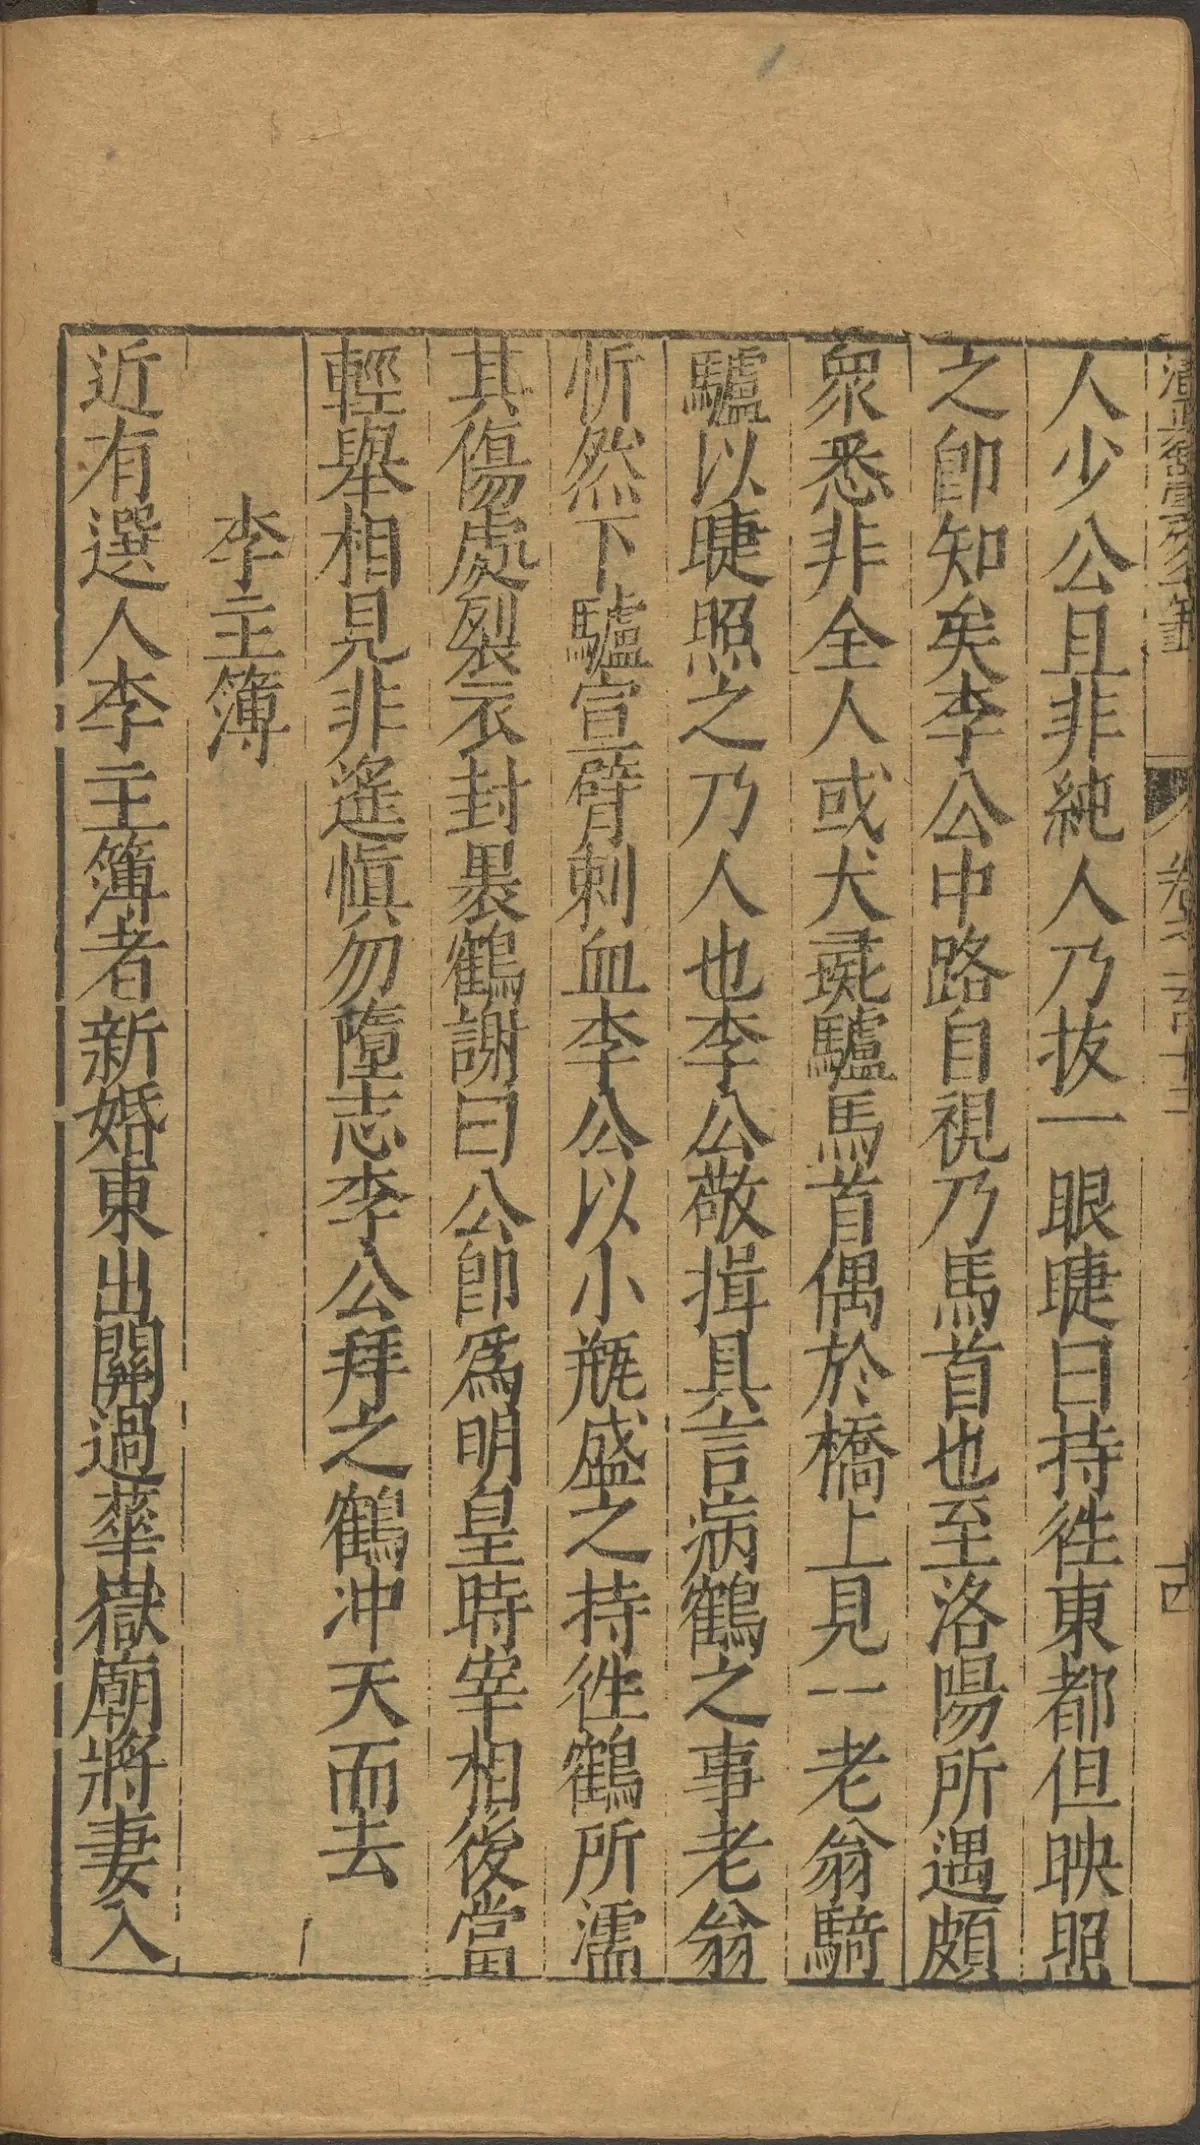 人少公且非純人乃拔一眼睫曰持徃東都但映照
之卽知矣李公中路自視乃馬首也至洛陽所遇頗
衆悉非全人或犬彘驢馬首偶於橋上見一老翁騎
驢以睫照之乃人也李公敬揖具言病鶴之事老翁
忻然下驢宣臂刺血李公以小瓶盛之持徃鶴所濡
其傷處裂衣封裹鶴謝曰公卽爲明皇時宰相後當
輕舉相見非遙愼勿墮志李公拜之鶴冲天而去
李主簿
近有選人李主簿者新婚東出關過華嶽廟將妻入